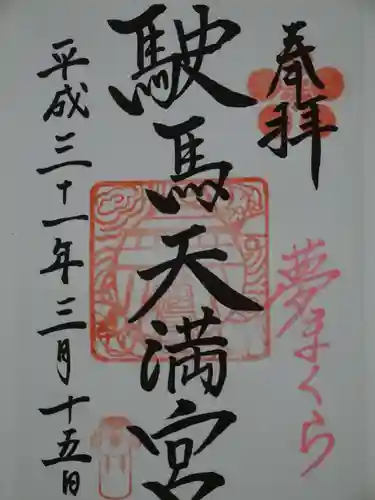 奉拝
夢まくら
駛馬天満宮
平成三十一年三月十五日